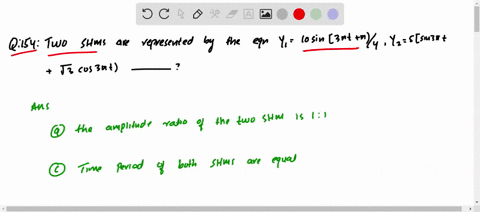 Q:154: Two SHMs are represented by the eqn Y₁ = 10 sin [3πt + π]/4 , Y₂ = 5[sin 3πt
+ √3 cos 3πt) ______ ?
Ans
(a) the amplitude ratio of the two SHM is 1:1
(c) Time Period of both SHMs are equal